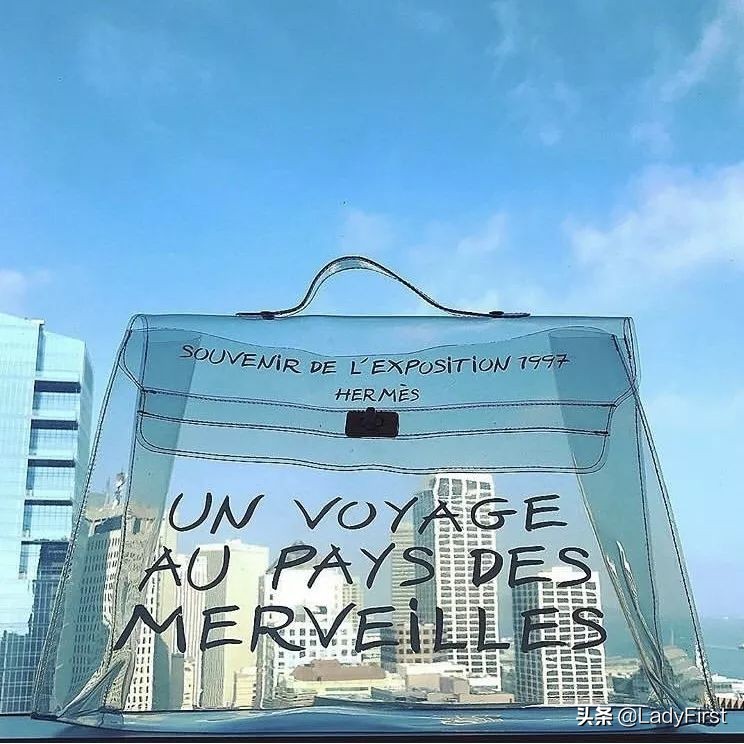 SOUVENIR DE L'EXPOSITION 1997
HERMÈS
UN VOYAGE
AU PAYS DES
MERVEILLES
头条 @LadyFirst